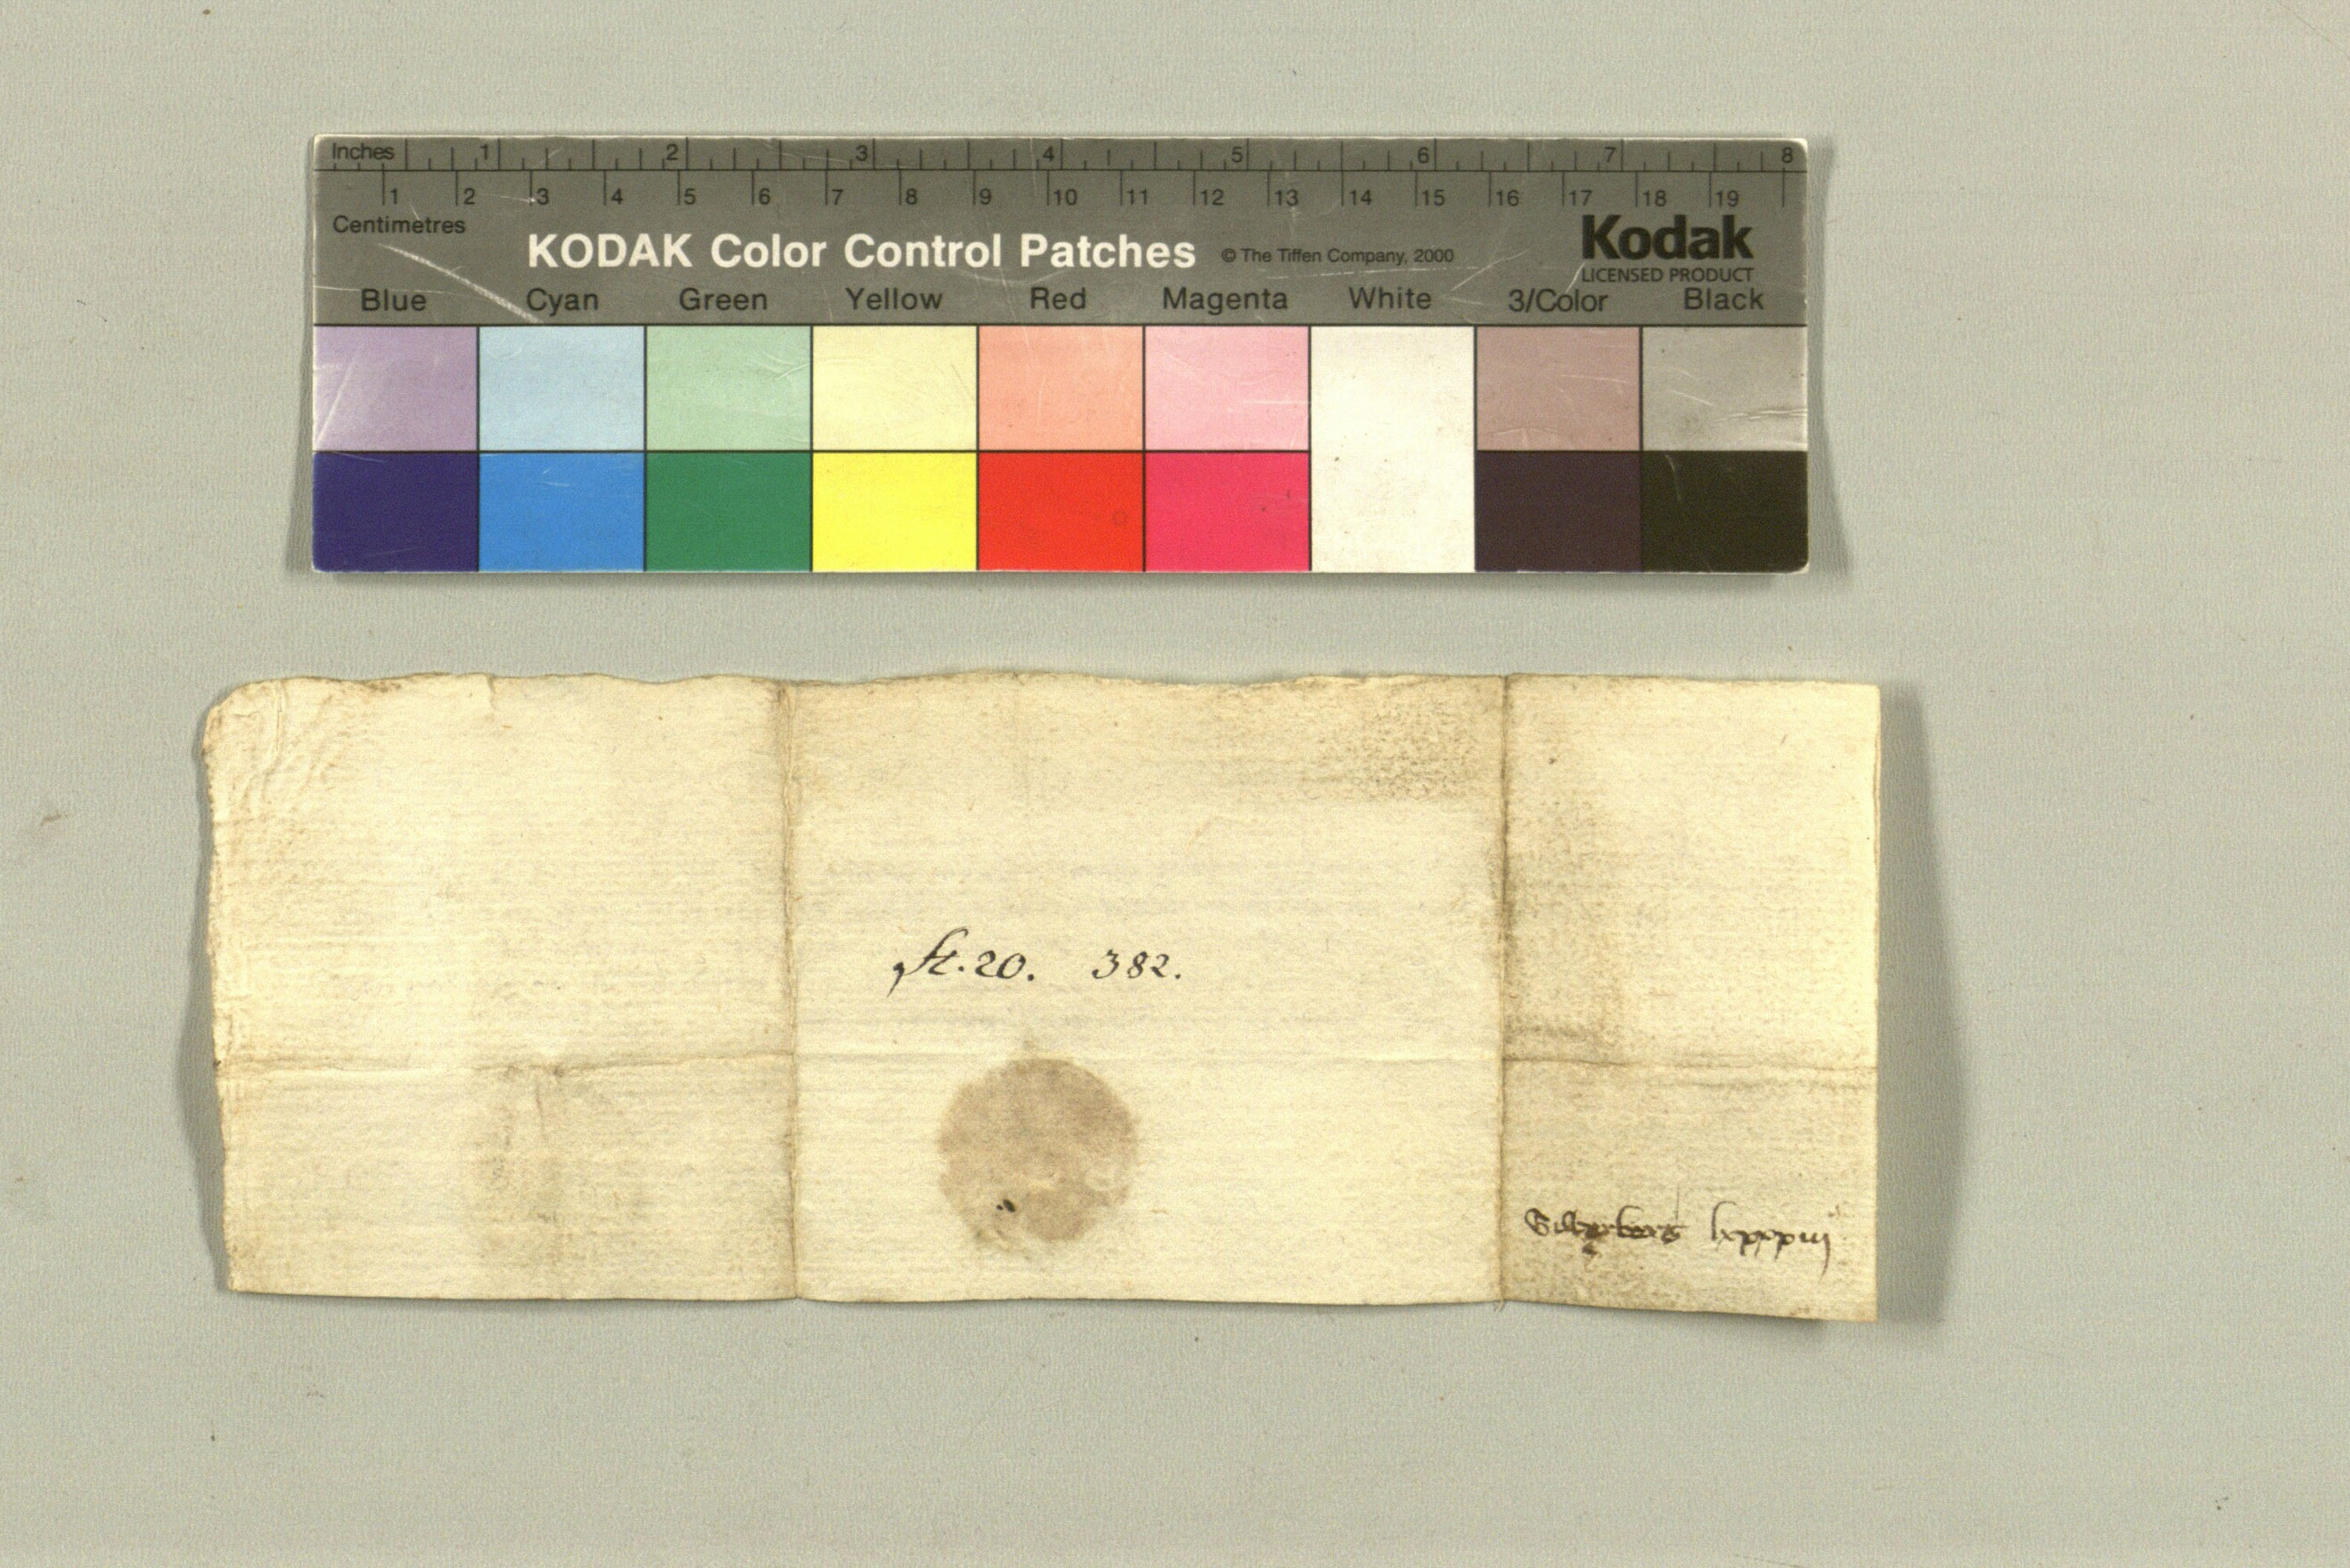 Inches 1 2 3 4 5 6 7 8
1 2 3 4 5 6 7 8 9 10 11 12 13 14 15 16 17 18 19
Centimetres
KODAK Color Control Patches © The Tiffen Company, 2000 Kodak
LICENSED PRODUCT
Blue Cyan Green Yellow Red Magenta White 3/Color Black
St. 20. 382.
lxxxxiii